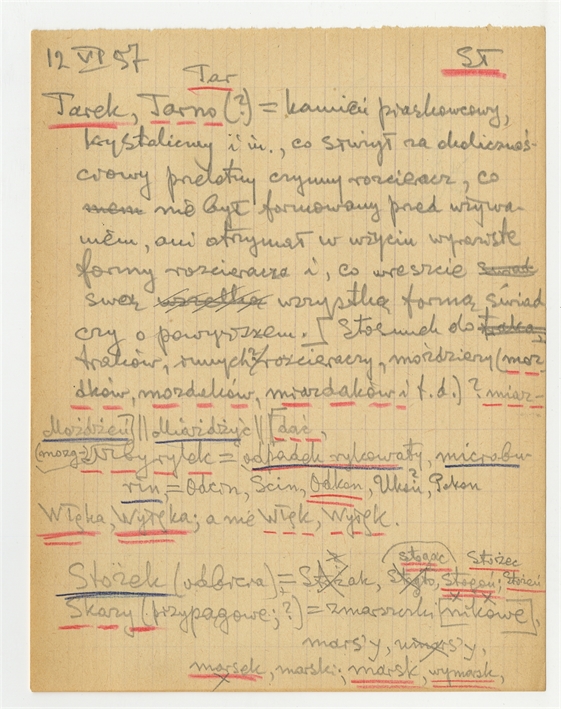 12 VI 57 ST
Tar
Tarek, Tarno (?) = kamień piaskowcowy,
krystaliczny i in., co służył za okolicznoś-
ciowy przelotny czynny rozcieracz, co
nie był formowany przed używa-
niem, ani otrzymał w użyciu wyraziste
formy rozcieracza i, co wreszcie
swą wszystką formą świad
czy o powyższem. [Stosunek do
traków, innych rozcieraczy, moździerzy (moz-
dków, mozdeków, miazdaków i t.d.)? miaz-
Możdżeń || Miażdżyć || [dać,
(mozg-) ryłek = odpadek rykowaty, microbu-
rin, = Odcin, Scin, Odkon, Ukoń?,
Włęka, Wyłęka; a nie Włęk, Wyłęk.
stogac Stożec
Stożek (odbierca) = Stożak, Stogoń; Stożeń
Skazy (przypagowe; ?) = zmarszczki [nikowe],
marsży,
marsek, marski; marsk, wymarsk,